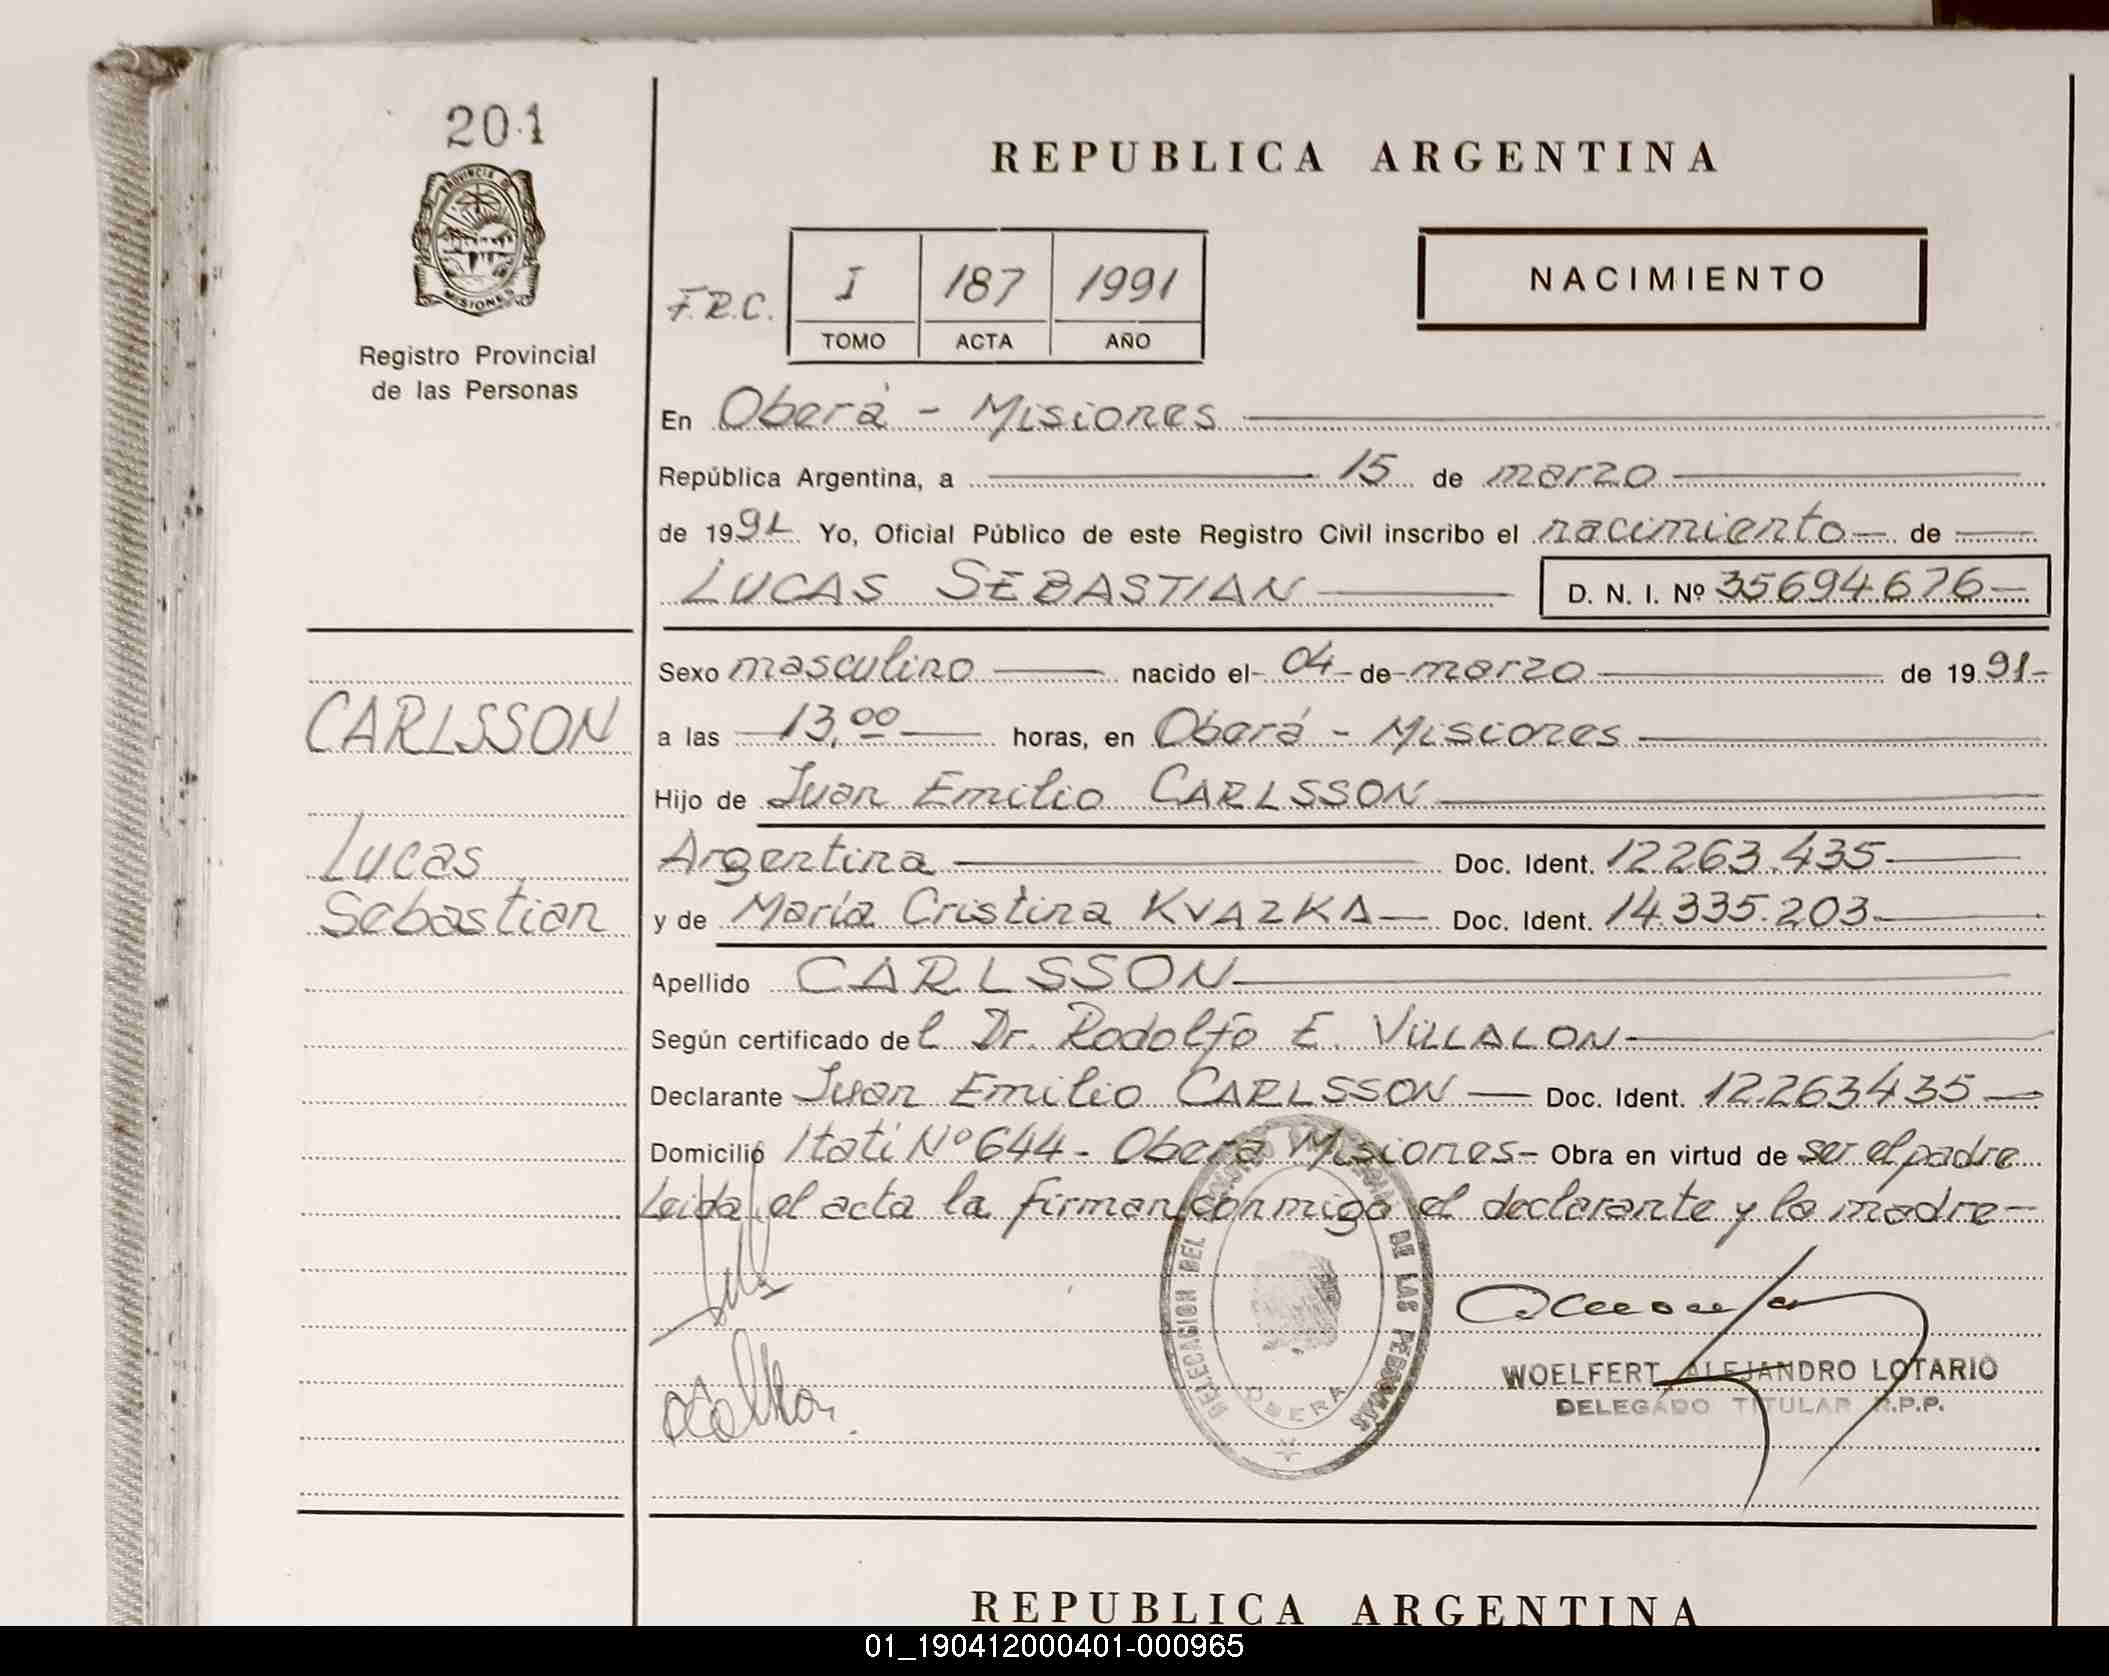 201
PROVINCIA DE
MISIONES
Registro Provincial
de las Personas
REPUBLICA ARGENTINA
F.R.C.
I 187 1991
TOMO ACTA AÑO
NACIMIENTO
En Oberá - Misiones
República Argentina, a 15 de marzo
de 1991 Yo, Oficial Público de este Registro Civil inscribo el nacimiento de
LUCAS SEBASTIAN D. N. I. Nº 35694676
CARLSSON
Lucas
Sebastian
Sexo masculino nacido el 04 de marzo de 1991
a las 13,00 horas, en Oberá - Misiones
Hijo de Juan Emilio CARLSSON
Argentina Doc. Ident. 12263.435
y de María Cristina KVAZKA Doc. Ident. 14.335.203
Apellido CARLSSON
Según certificado del Dr. Rodolfo E. VILLALON
Declarante Juan Emilio CARLSSON Doc. Ident. 12.263435
Domicilio Itatí Nº 644 - Oberá Misiones - Obra en virtud de ser el padre
Leida el acta la firman conmigo el declarante y la madre
DELEGACION DEL REGISTRO PROVINCIAL DE LAS PERSONAS
OBERA
WOELFERT ALEJANDRO LOTARIO
DELEGADO TITULAR R.P.P.
REPUBLICA ARGENTINA
01_190412000401-000965